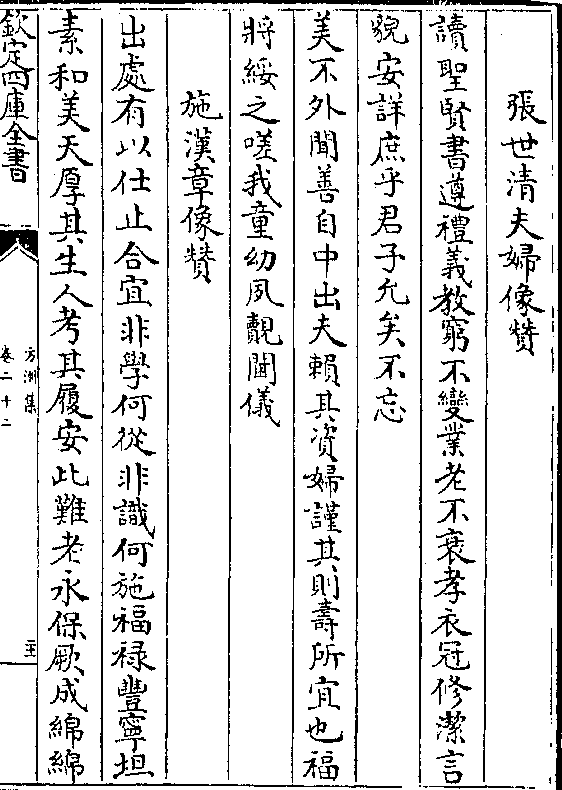 張世清夫婦像贊
讀聖賢書遵禮義教窮不變業老不衰孝衣冠修潔言
貌安詳庶乎君子允矣不忘
美不外聞善自中出夫賴其資婦謹其則壽所宜也福
將綏之嗟我童幼夙覿閫儀
施漢章像贊
出處有以仕止合宜非學何從非識何施福祿豐寧坦
素和美天厚其生人考其履安此難老永保厥成綿綿
欽定四庫全書
方洲集
卷二十二